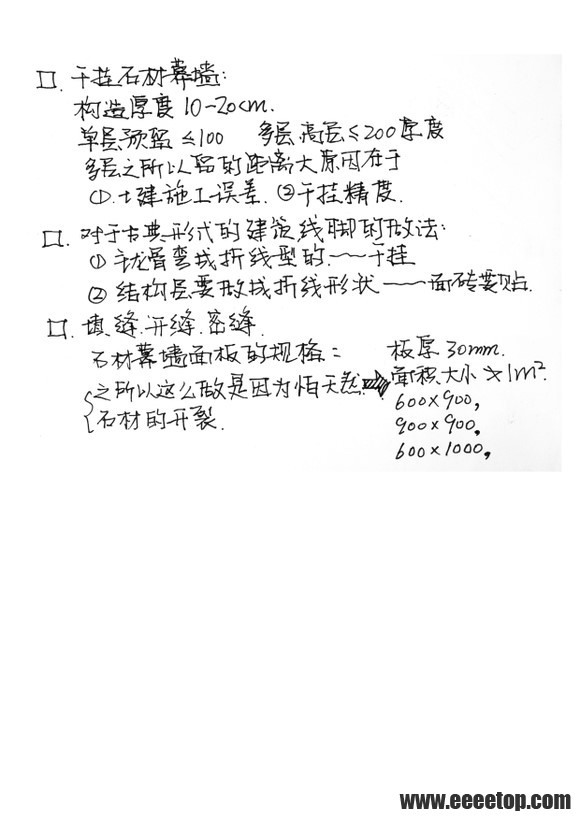 口. 干挂石材幕墙:
构造厚度 10-20cm.
单层预留 ≤100 多层,高层≤200厚度
多层之所以留的距离大原因在于
①.土建施工误差. ②干挂精度.
口. 对于古典形式的建筑线脚的做法:
① 龙骨弯成折线型的.——干挂
② 结构层要做成折线形状——面砖要贴.
口. 填缝.开缝.密缝.
石材幕墙面板的规格: 板厚 30mm.
之所以这么做是因为怕天然 面积大小≯1m².
石材的开裂. 600×900,
900×900,
600×1000,
www.eeeetop.com